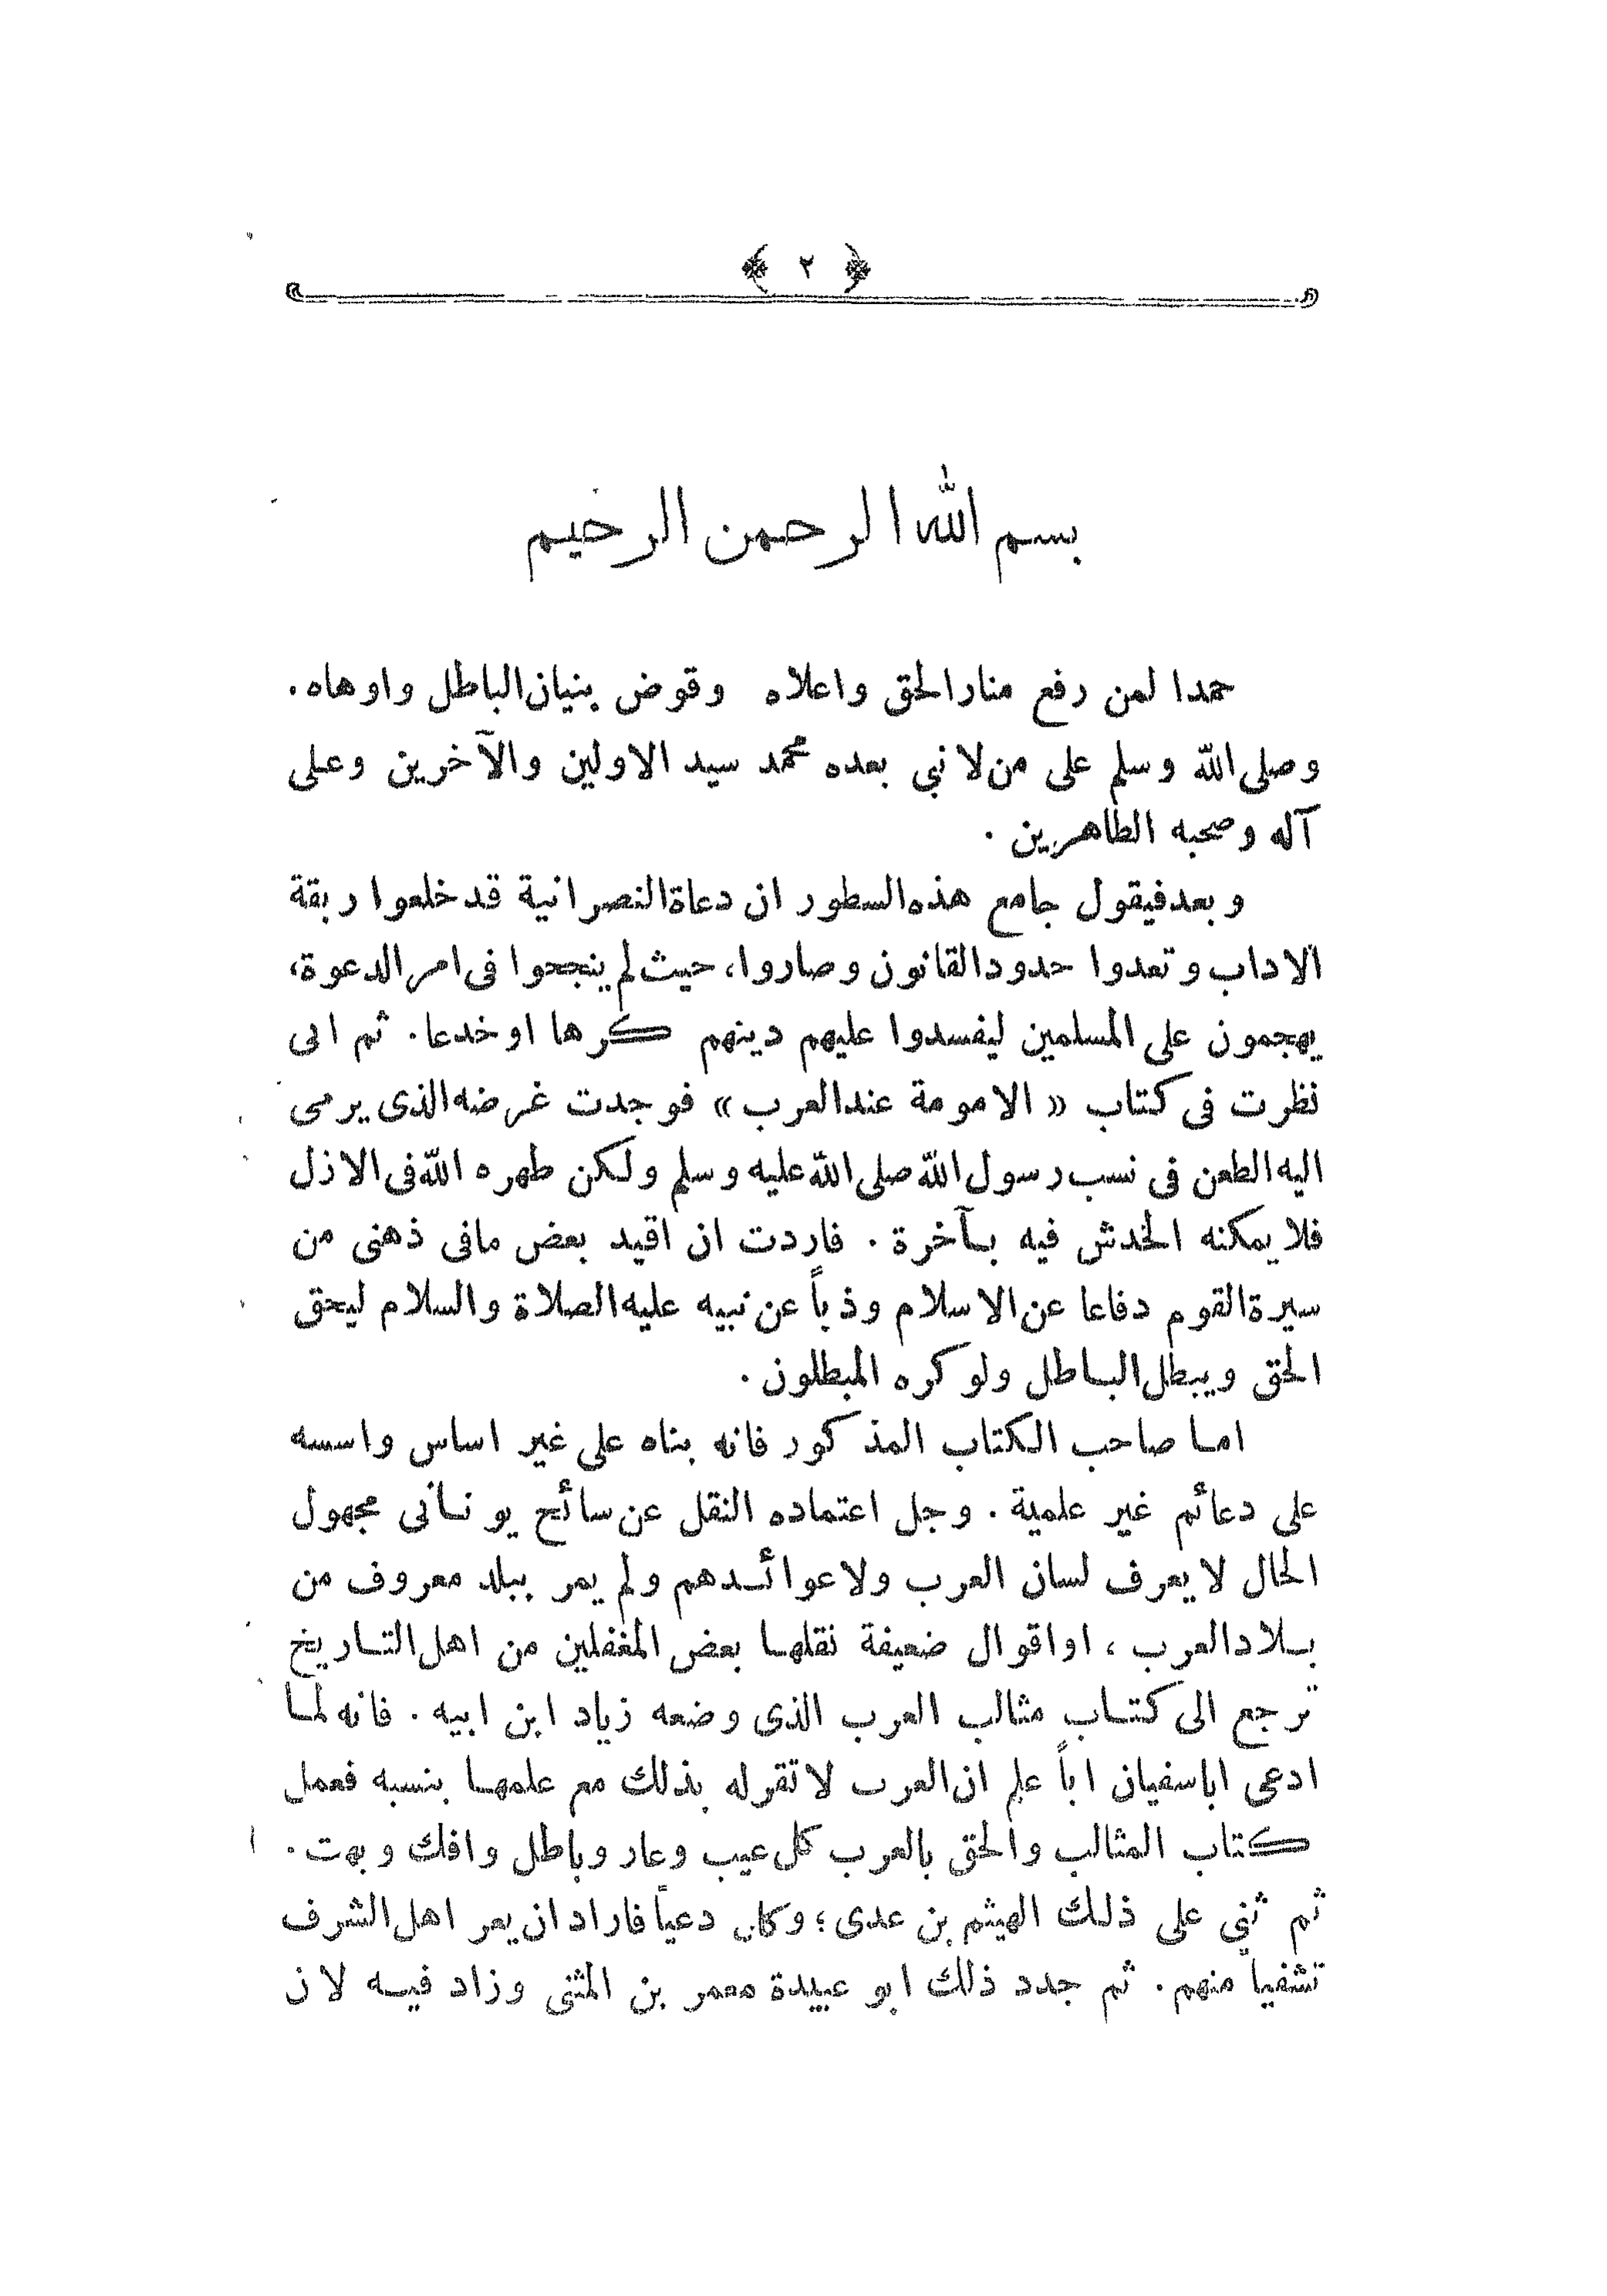 ﴿ ٢ ﴾
بسم الله الرحمن الرحيم
حمدا لمن رفع منار الحق واعلاه وقوض بنيان الباطل واوهاه.
وصلى الله وسلم على من لا نبي بعده محمد سيد الاولين والآخرين وعلى
آله وصحبه الطاهرين .
وبعد فيقول جامع هذه السطور ان دعاة النصرانية قد خلعوا ربقة
الاداب وتعدوا حدود القانون وصاروا، حيث لم ينجحوا فى امر الدعوة،
يهجمون على المسلمين ليفسدوا عليهم دينهم كرها او خدعا. ثم انى
نظرت فى كتاب « الامومة عند العرب » فوجدت غرضه الذى يرمى
اليه الطعن فى نسب رسول الله صلى الله عليه وسلم ولكن طهره الله فى الازل
فلا يمكنه الخدش فيه بآخرة . فاردت ان اقيد بعض مافى ذهنى من
سيرة القوم دفاعا عن الاسلام وذباً عن نبيه عليه الصلاة والسلام ليحق
الحق ويبطل الباطل ولو كره المبطلون .
اما صاحب الكتاب المذكور فانه بناه على غير اساس واسسه
على دعائم غير علمية . وجل اعتماده النقل عن سائح يونانى مجهول
الحال لا يعرف لسان العرب ولا عوائدهم ولم يمر ببلد معروف من
بلاد العرب ، او اقوال ضعيفة نقلها بعض المغفلين من اهل التاريخ
ترجع الى كتاب مثالب العرب الذى وضعه زياد ابن ابيه . فانه لما
ادعى اباسفيان اباً علم ان العرب لا تقر له بذلك مع علمها بنسبه فعمل
كتاب المثالب والحق بالعرب كل عيب وعار وباطل وافك وبهت .
ثم ثنى على ذلك الهيثم بن عدى؛ وكان دعياً فاراد ان يعر اهل الشرف
تشفياً منهم . ثم جدد ذلك ابو عبيدة معمر بن المثنى وزاد فيه لان